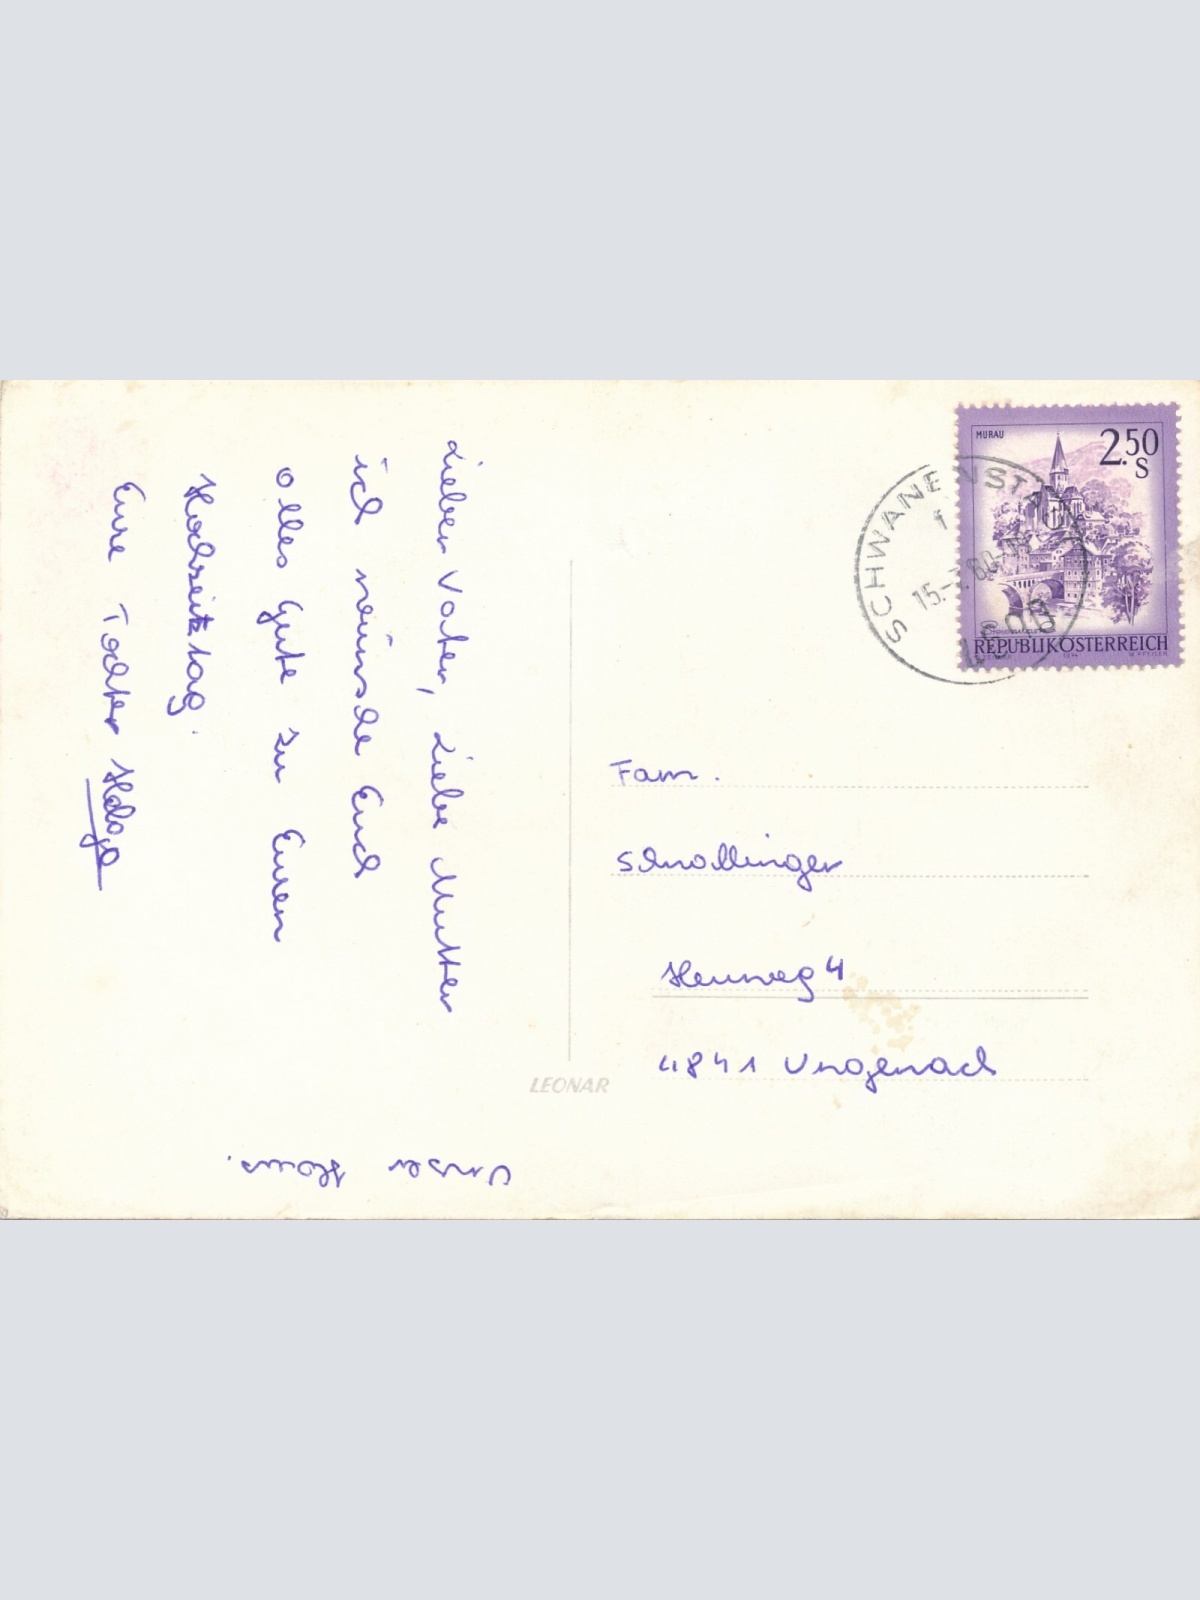 Lieber Vater, Liebe Mutter
ich wünsche Euch
alles Gute zu Euren
Hochzeitstag.
Eure Tochter
Unser Haus.
LEONAR
MURAU
2.50
S
REPUBLIK ÖSTERREICH
SCHWANENSTADT
Fam.
Schnallinger
Heuweg 4
4841 Ungenach